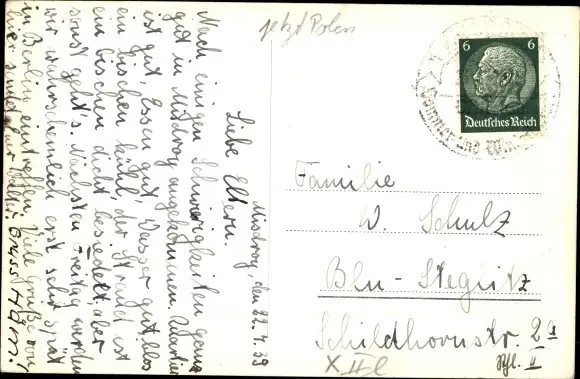 jetzt Polen
6 6
Deutsches Reich
Misdroy, den 22.4.39
Liebe Eltern.
Nach einigen Schwierigkeiten ganz
gut in Misdroy angekommen. Quartier
ist gut, Essen gut, Wasser gut, blos
ein bischen kühl, der Strand ist
ein bischen dicht besiedelt, aber
sonst geht's. Nächsten Freitag werden
wir wahrscheinlich erst sehr spät
in Berlin eintreffen. Viele Grüße von
hier sendet
Familie
W. Schulz
Bln-Steglitz
Schildhornstr. 2a
II